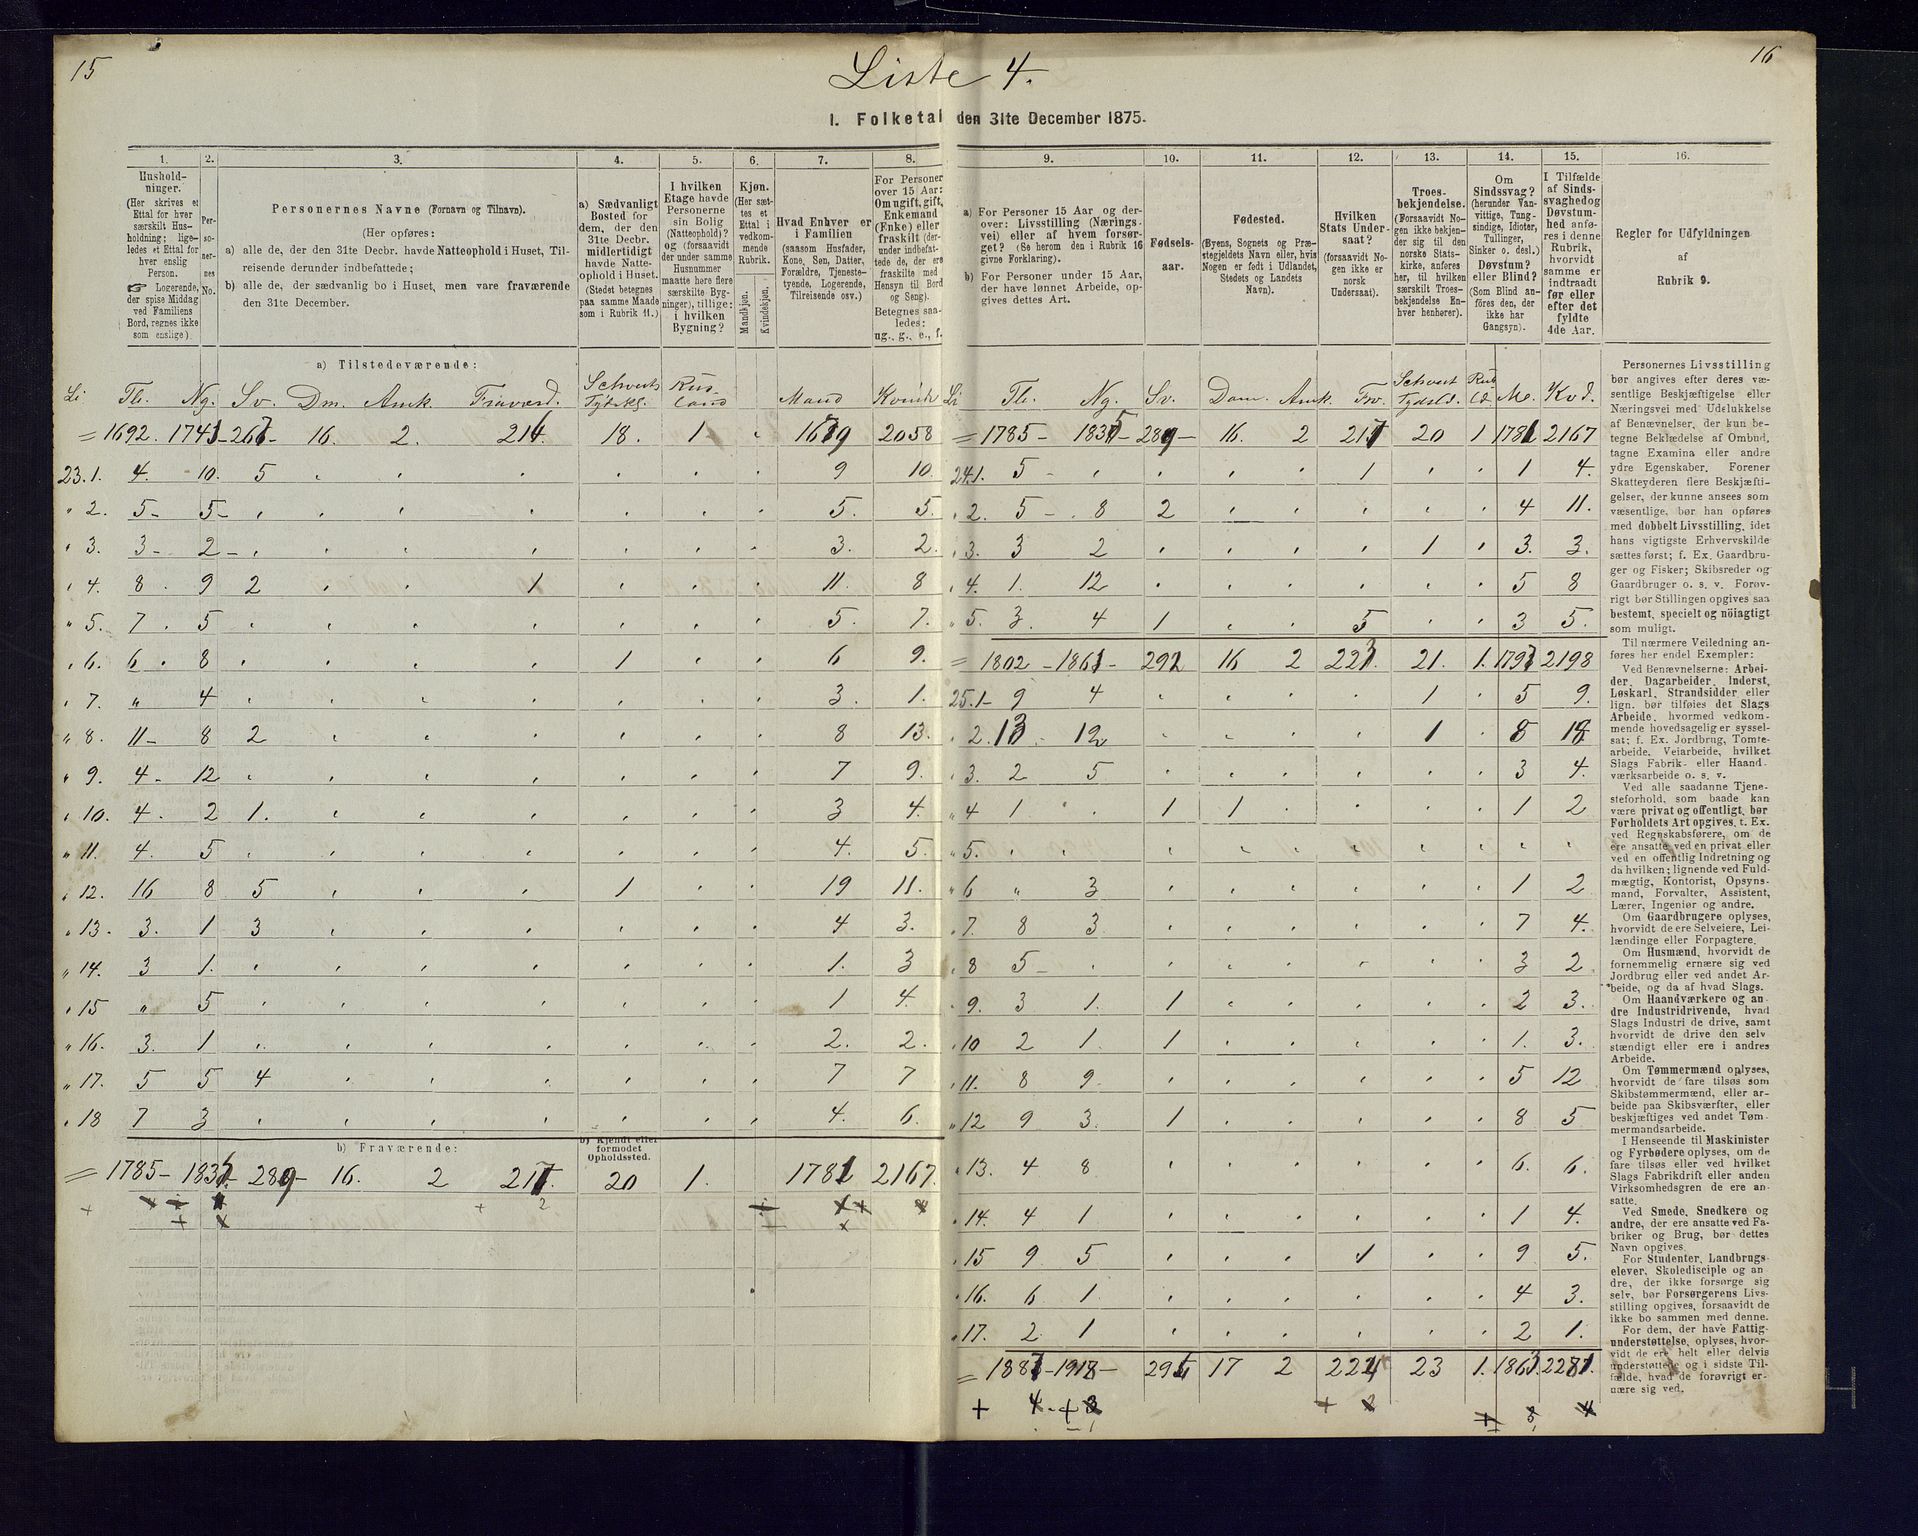 15
16
Liste 4.
1. Folketal den 31te December 1875.
1. 2. 3. 4. 5. 6. 7. 8. 9. 10. 11. 12. 13. 14. 15. 16.
Hushold-
ninger.
(Her skrives et
Ettal for hver
særskilt Hus-
holdning; lige-
ledes et Ettal for
hver enslig
Person.
☞ Logerende,
der spise Middag
ved Familiens
Bord, regnes ikke
som enslige)
Per-
so-
ner-
nes
No.
Personernes Navne (Fornavn og Tilnavn).
(Her opføres:
a) alle de, der den 31te Decbr. havde Natteophold i Huset, Til-
reisende derunder indbefattede;
b) alle de, der sædvanlig bo i Huset, men vare fraværende
den 31te December.
a) Sædvanligt
Bosted for
dem, der den
31te Decbr.
midlertidigt
havde Natte-
ophold i Huset.
(Stedet betegnes
paa samme Maade
som i Rubrik 11.)
I hvilken
Etage havde
Personerne
sin Bolig
(Natteophold)?
og (forsaavidt
der under samme
Husnummer
maatte høre flere
særskilte Byg-
ninger), tillige:
i hvilken
Bygning?
Kjøn.
(Her sæt-
tes et
Ettal i
vedkom-
mende
Rubrik.
Mandkjøn.
Kvindekjøn.
Hvad Enhver er
i Familien
(saasom Husfader,
Kone, Søn, Datter,
Forældre, Tjeneste-
tyende, Logerende,
Tilreisende osv.)
For Personer
over 15 Aar:
Om ugift, gift,
Enkemand
(Enke) eller
fraskilt (der-
under indbefat-
tede de, der ere
fraskilte med
Hensyn til Bord
og Seng).
Betegnes saa-
ledes:
ug., g., e., f.
a) For Personer 15 Aar og der-
over: Livsstilling (Nærings-
vei) eller af hvem forsør-
get? (Se herom den i Rubrik 16
givne Forklaring).
b) For Personer under 15 Aar,
der have lønnet Arbeide, op-
gives dettes Art.
Fødsels-
aar.
Fødested.
(Byens, Sognets og Præ-
stegjeldets Navn eller, hvis
Nogen er født i Udlandet,
Stedets og Landets
Navn).
Hvilken
Stats Under-
saat?
(forsaavidt No-
gen ikke er
norsk
Undersaat).
Troes-
bekjendelse.
(Forsaavidt No-
gen ikke bekjen-
der sig til den
norske Stats-
kirke, anføres
her, til hvilken
særskilt Troes-
bekjendelse En-
hver henhører).
Om
Sindssvag?
(herunder Van-
vittige, Tung-
sindige, Idioter,
Tullinger,
Sinker o. desl.)
Døvstum?
eller Blind?
(Som Blind an-
føres den, der
ikke har
Gangsyn).
I Tilfælde
af Sinds-
svaghed og
Døvstum-
hed anfø-
res i denne
Rubrik,
hvorvidt
samme er
indtraadt
før eller
efter det
fyldte
4de Aar.
Regler for Udfyldningen
af
Rubrik 9.
a) Tilstedeværende:
Li. Tle. Ng. Sv. Dm. Amk. Fraværd. Schveits Tydskl. Rus-land Mand Kvinde
= 1692. 1741 - 267 - 16. 2. 214 18. 1 1679 2058
23.1. 4. 10. 5 9 10.
" 2. 5 - 5 - 5. 5.
" 3. 3 - 2 - 3. 2.
" 4. 8. 9 2 1 11. 8
" 5. 7. 5 5. 7.
" 6. 6. 8 1 6 9.
" 7. " 4 3. 1.
" 8. 11 - 8 2 8 13.
" 9. 4 - 12 7 9.
" 10. 4. 2 1. 3 4.
" 11. 4. 5 4. 5.
" 12. 16 8 5 1 19 11.
" 13. 3. 1 3 4 3.
" 14. 3 1. 1. 3
" 15 " 5 1 4.
" 16. 3. 1 2. 2.
" 17. 5 5 4 7 7
" 18 7 3 4. 6.
b) Fraværende:
b) Kjendt eller
formodet
Opholdssted.
= 1785 - 1835 - 289 - 16. 2 217. 20 1. 1781 2167.
Li Tle. Ng. Sv. Dam. Amk. Fv. Schveit Tydskld. Rusld. M. Kvd.
= 1785 - 1835 - 289 - 16. 2 217 20 1 1781 2167
24.1. 5 - 1 1 4.
" 2. 5 - 8 2 4 11.
" 3. 3 2 1 3. 3.
" 4. 1. 12 5 8
" 5. 3. 4 1 5 3 5.
= 1802 - 1861 - 292 16 2 223. 21. 1. 1797 2198
25.1 - 9 4 1 5 9.
" 2. 13 - 12 1 8 18
" 3. 2 5 3 4.
" 4 1 1 1 1 2
" 5.
" 6 " 3 1 2
" 7. 8 3 7 4.
" 8 5 - 3 2
" 9. 3 1. 1 2 3.
" 10 2 1. 1 1. 3.
" 11. 8 9. 5 12
" 12 9 3. 1 8 5
" 13. 4 8 6. 6.
" 14. 4 1 1 4.
" 15 9 5 1 9 5.
" 16. 6 1. 4 3.
" 17. 2. 1 2 1.
= 1887 - 1918 - 295 17 2 224 23 1. 1863. 2281.
Personernes Livsstilling
bør angives efter deres væ-
sentlige Beskjæftigelse eller
Næringsvei med Udelukkelse
af Benævnelser, der kun be-
tegne Beklædelse af Ombud,
tagne Examina eller andre
ydre Egenskaber. Forener
Skatteyderen flere Beskjæfti-
gelser, der kunne ansees som
væsentlige, bør han opføres
med dobbelt Livsstilling, idet
hans vigtigste Erhvervskilde
sættes først; f. Ex. Gaardbru-
ger og Fisker; Skibsreder og
Gaardbruger o. s. v. Forøv-
rigt bør Stillingen opgives saa
bestemt, specielt og nöiagtigt
som muligt.
Til nærmere Veiledning an-
føres her endel Exempler:
Ved Benævnelserne: Arbei-
der, Dagarbeider, Inderst,
Løskarl, Strandsidder eller
lign. bør tilføies det Slags
Arbeide, hvormed vedkom-
mende hovedsagelig er syssel-
sat; f. Ex. Jordbrug, Tomte-
arbeide, Veiarbeide, hvilket
Slags Fabrik- eller Haand-
værksarbeide o. s. v.
Ved alle saadanne Tjene-
steforhold, som baade kan
være privat og offentligt, bør
Forholdets Art opgives, t. Ex.
ved Regnskabsførere, om de
ere ansatte ved en privat eller
ved en offentlig Indretning og
da hvilken; lignende ved Fuld-
mægtig, Kontorist, Opsyns-
mand, Forvalter, Assistent,
Lærer, Ingeniør og andre.
Om Gaardbrugere oplyses,
hvorvidt de ere Selveiere, Lei-
lændinge eller Forpagtere.
Om Husmænd, hvorvidt de
fornemmelig ernære sig ved
Jordbrug eller ved andet Ar-
beide, og da af hvad Slags.
Om Haandværkere og an-
dre Industridrivende, hvad
Slags Industri de drive, samt
hvorvidt de drive den selv
stændigt eller ere i andres
Arbeide.
Om Tømmermænd oplyses,
hvorvidt de fare tilsøs som
Skibstømmermænd, eller ar-
beide paa Skibsværfter, eller
beskjæftiges ved andet Tøm-
mermandsarbeide.
I Henseende til Maskinister
og Fyrbødere oplyses, om de
fare tilsøs eller ved hvilket
Slags Fabrikdrift eller anden
Virksomhedsgren de ere an-
satte.
Ved Smede, Snedkere og
andre, der ere ansatte ved Fa-
briker og Brug, bør dettes
Navn opgives.
For Studenter, Landbrugs-
elever, Skoledisciple og an-
dre, der ikke forsørge sig
selv, bør Forsørgerens Livs-
stilling opgives, forsaavidt de
ikke bo sammen med denne.
For dem, der have Fattig-
understøttelse, oplyses, hvor-
vidt de ere helt eller delvis
understøttede og i sidste Til-
fælde, hvad de forøvrigt er-
nære sig ved.